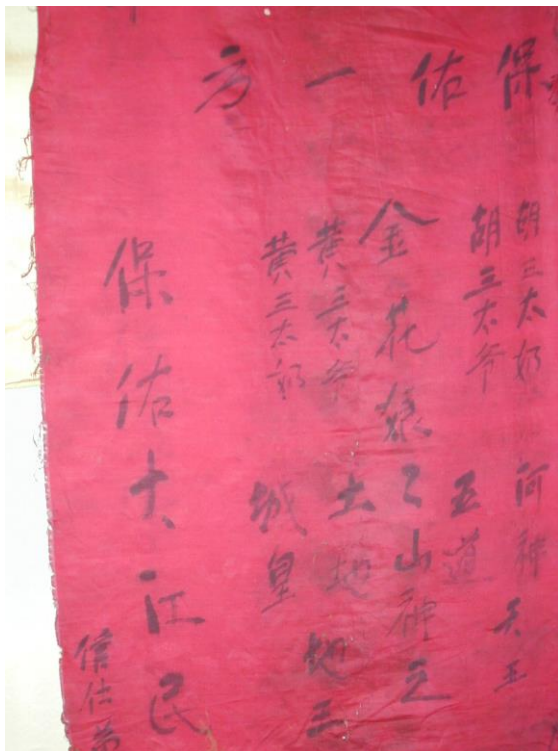 保佑一方
胡三太奶 河神 天王
胡三太爷 五道
金花娘々山神之
黄三太爷 土地 地王
黄三太奶 城皇
保佑大江民
信仕弟